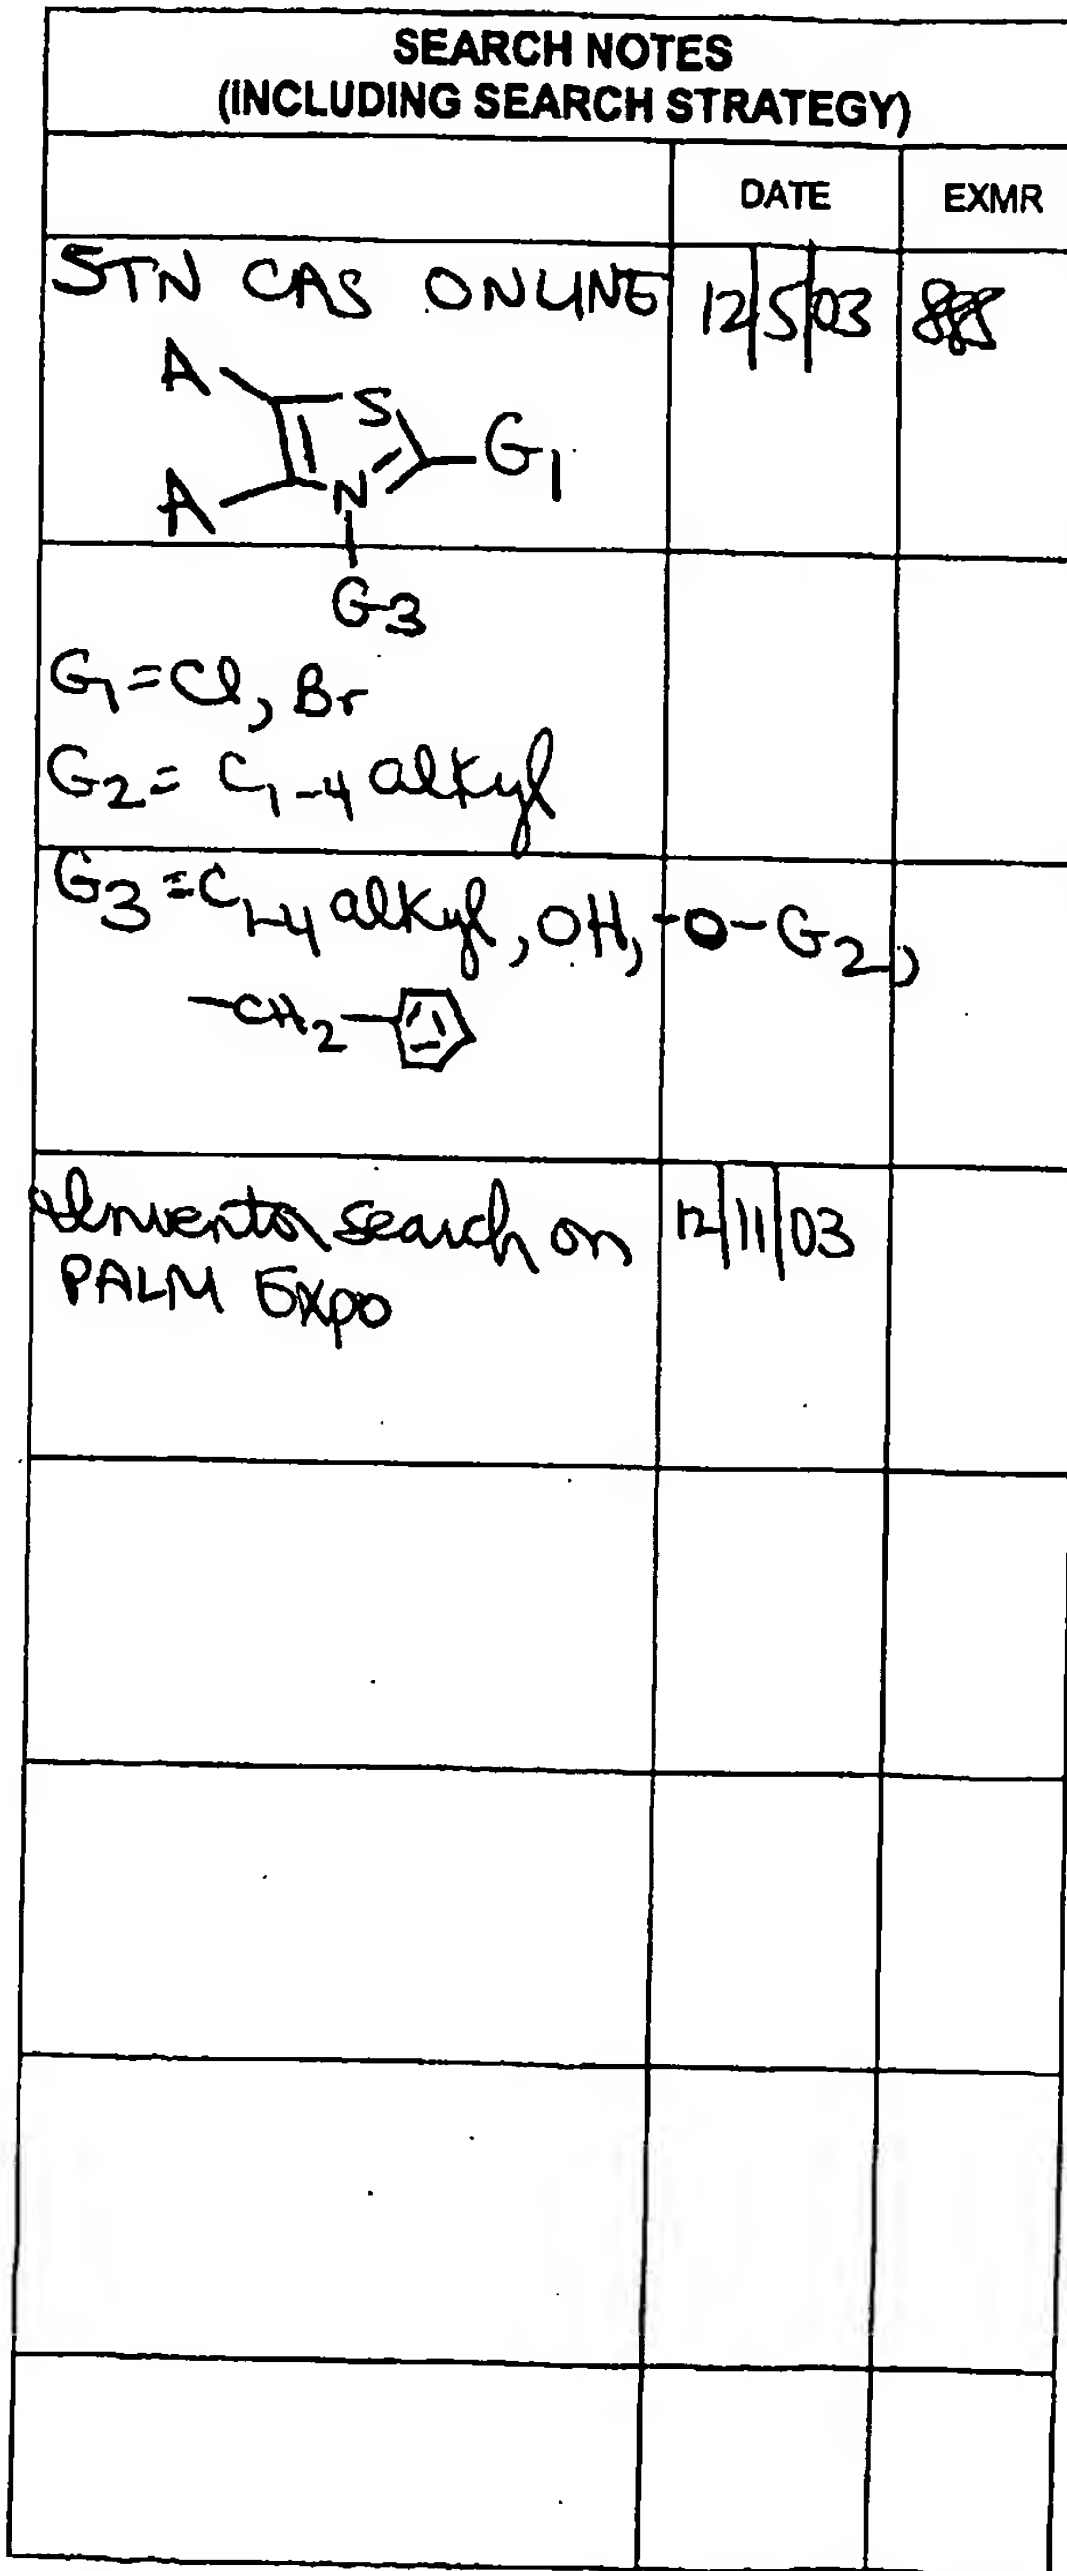 SEARCH NOTES
(INCLUDING SEARCH STRATEGY)
DATE EXMR
STN CAS ONLINE 12/5/03
A S
G1
A N
G3
G1 = Cl, Br
G2 = C1-4 alkyl
G3 = C1-4 alkyl, OH, -O-G2,
-CH2-
Inventor search on 12/11/03
PALM Expo